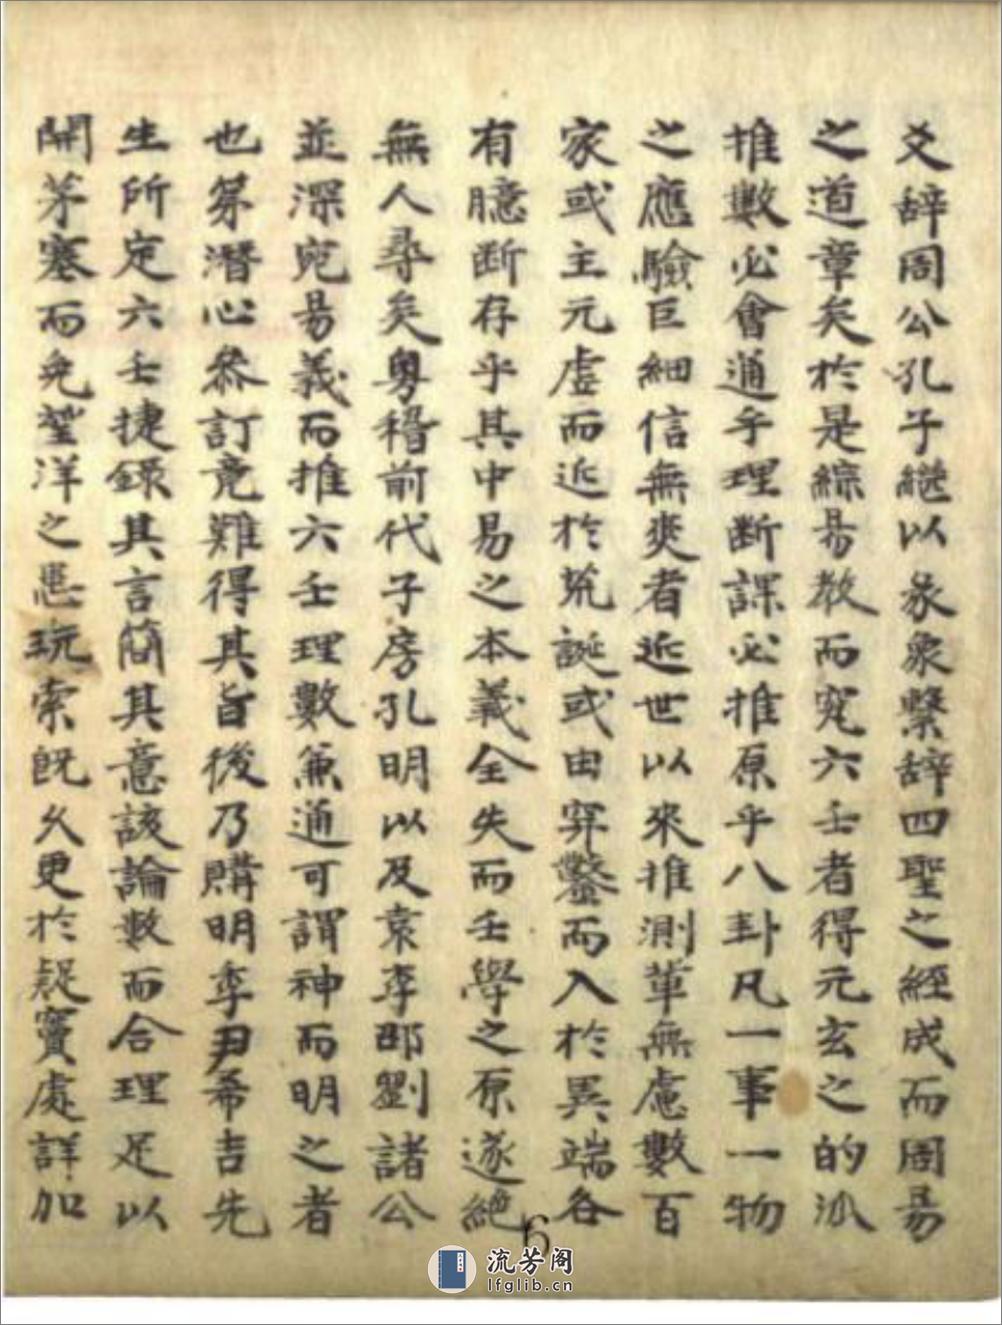 爻辞周公孔子継以彖象繫辞四聖之經成而周易
之道章矣於是綜易教而究六壬者得元玄之的派
推數必會通乎理断課必推原乎八卦凡一事一物
之應驗巨細信無爽者近世以來推測軰無慮數百
家或主元虚而近於荒誕或由穿鑿而入於異端各
有臆断存乎其中易之本義全失而壬學之原遂絕
無人尋矣粤稽前代子房孔明以及袁李邵劉諸公
並深究易義而推六壬理數兼通可謂神而明之者
也茅潛心叅訂竟難得其旨後乃購明季尹希吉先
生所定六壬捷錄其言簡其意該論數而合理足以
開茅塞而免望洋之悲玩索既久更於疑竇處詳加
6
流芳阁
lfglib.cn